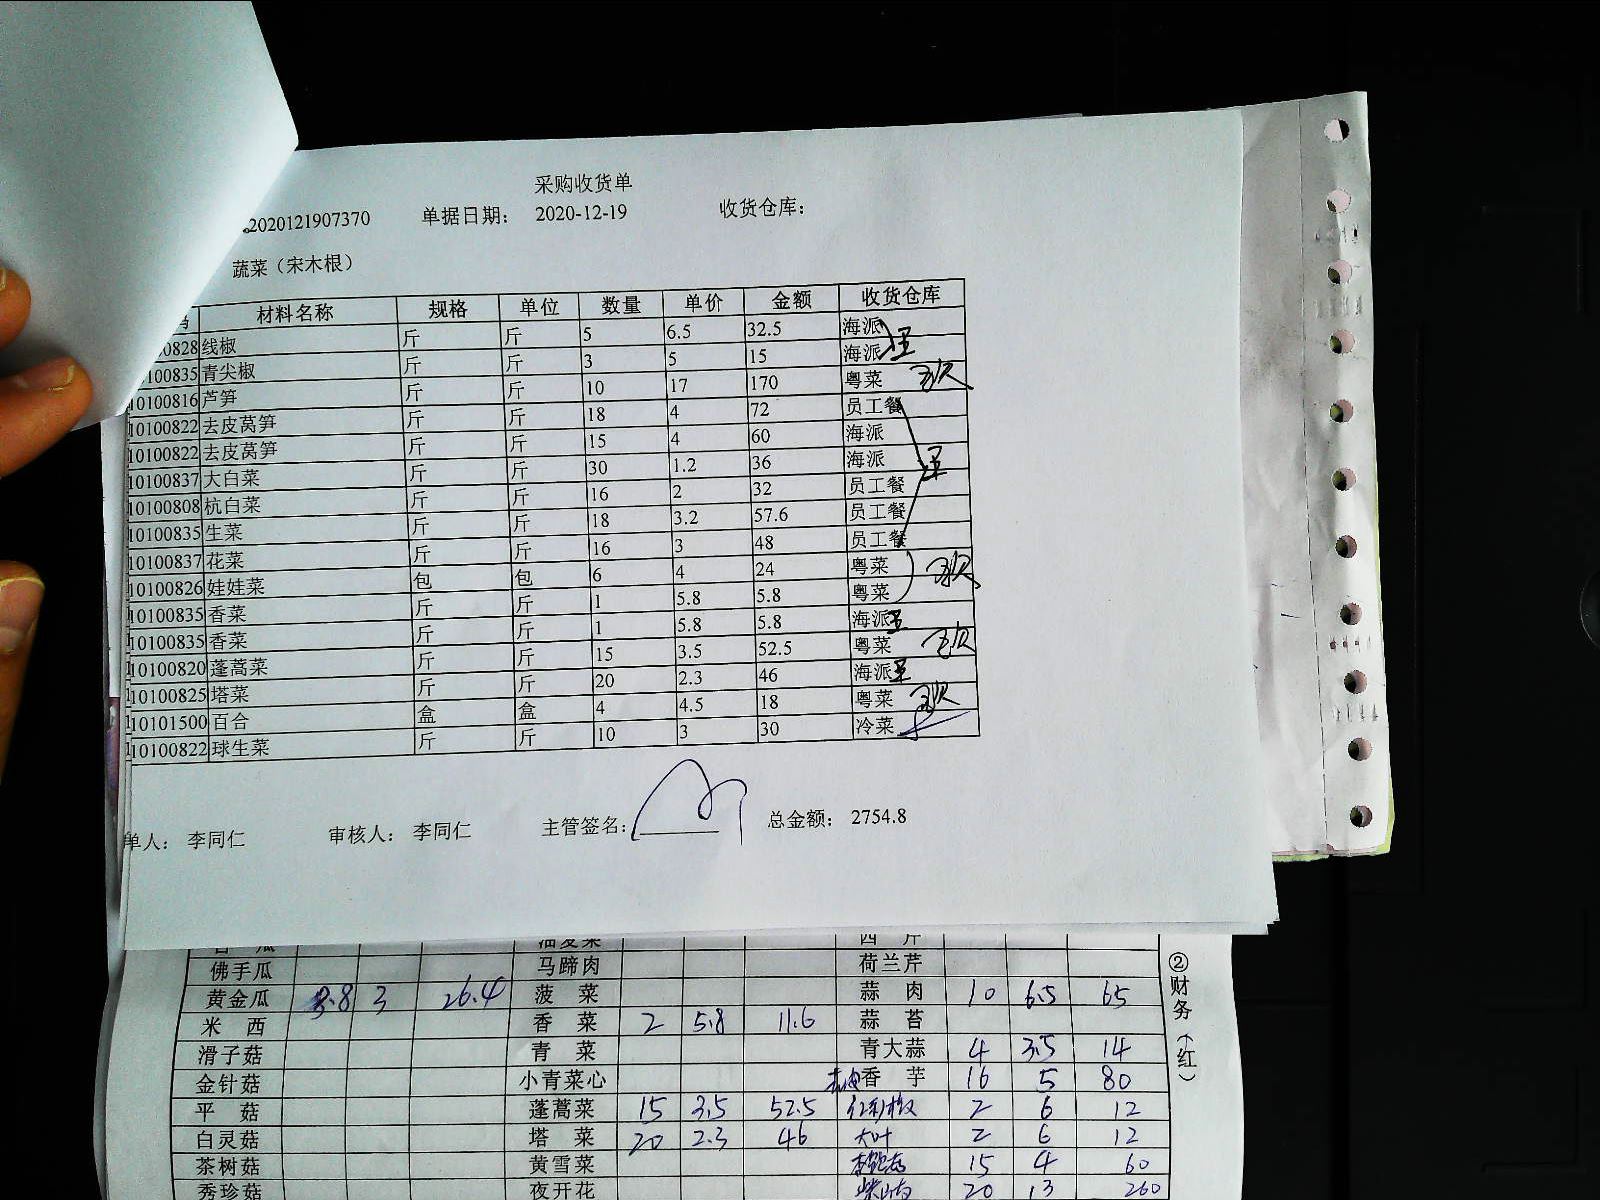 采购收货单
2020121907370 单据日期： 2020-12-19 收货仓库：
蔬菜（宋木根）
材料名称 规格 单位 数量 单价 金额 收货仓库
0828 线椒 斤 斤 5 6.5 32.5 海派
100835 青尖椒 斤 斤 3 5 15 海派
10100816 芦笋 斤 斤 10 17 170 粤菜
10100822 去皮莴笋 斤 斤 18 4 72 员工餐
10100822 去皮莴笋 斤 斤 15 4 60 海派
10100837 大白菜 斤 斤 30 1.2 36 海派
10100808 杭白菜 斤 斤 16 2 32 员工餐
10100835 生菜 斤 斤 18 3.2 57.6 员工餐
10100837 花菜 斤 斤 16 3 48 员工餐
10100826 娃娃菜 包 包 6 4 24 粤菜
10100835 香菜 斤 斤 1 5.8 5.8 粤菜
10100835 香菜 斤 斤 1 5.8 5.8 海派
10100820 蓬蒿菜 斤 斤 15 3.5 52.5 粤菜
10100825 塔菜 斤 斤 20 2.3 46 海派
10101500 百合 盒 盒 4 4.5 18 粤菜
10100822 球生菜 斤 斤 10 3 30 冷菜
单人： 李同仁 审核人： 李同仁 主管签名： 总金额： 2754.8
佛手瓜 马蹄肉 荷兰芹
黄金瓜 8.8 3 26.4 菠菜 蒜肉 10 6.5 65
米西 香菜 2 5.8 11.6 蒜苔
滑子菇 青菜 青大蒜 4 3.5 14
金针菇 小青菜心 香芋 16 5 80
平菇 蓬蒿菜 15 3.5 52.5 红彩椒 2 6 12
白灵菇 塔菜 20 2.3 46 大叶 2 6 12
茶树菇 黄雪菜 15 4 60
秀珍菇 夜开花 20 13 260
②财务（红）